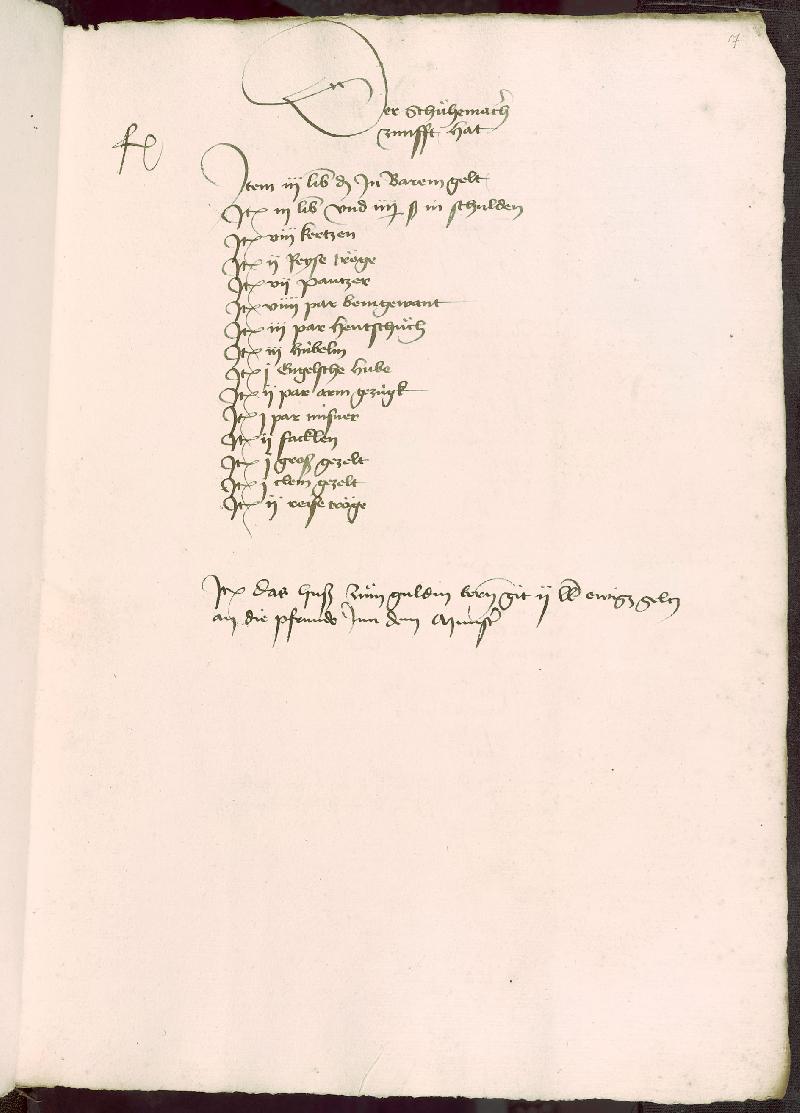 7
Der Schuͦhemacher
zunfft hat
Item iij lib d In Barem gelt
Itē iij lib vnd iiij ß in schulden
Itē viij kertzen
Itē ij Reyse troͤge
Itē vij pantzer
Itē viiij par beingewant
Itē iij par hentschuͦch
Itē iij hübelin
Itē j Engelsche hube
Itē ij par arm gezügk
Itē j par
Itē ij facklen
Itē j groß gezelt
Itē j clein gezelt
Itē ij reise troͤge
Itē das huß zuͦm guldin git ij ewigs gelts
an die pfrunde Inn dem Münster